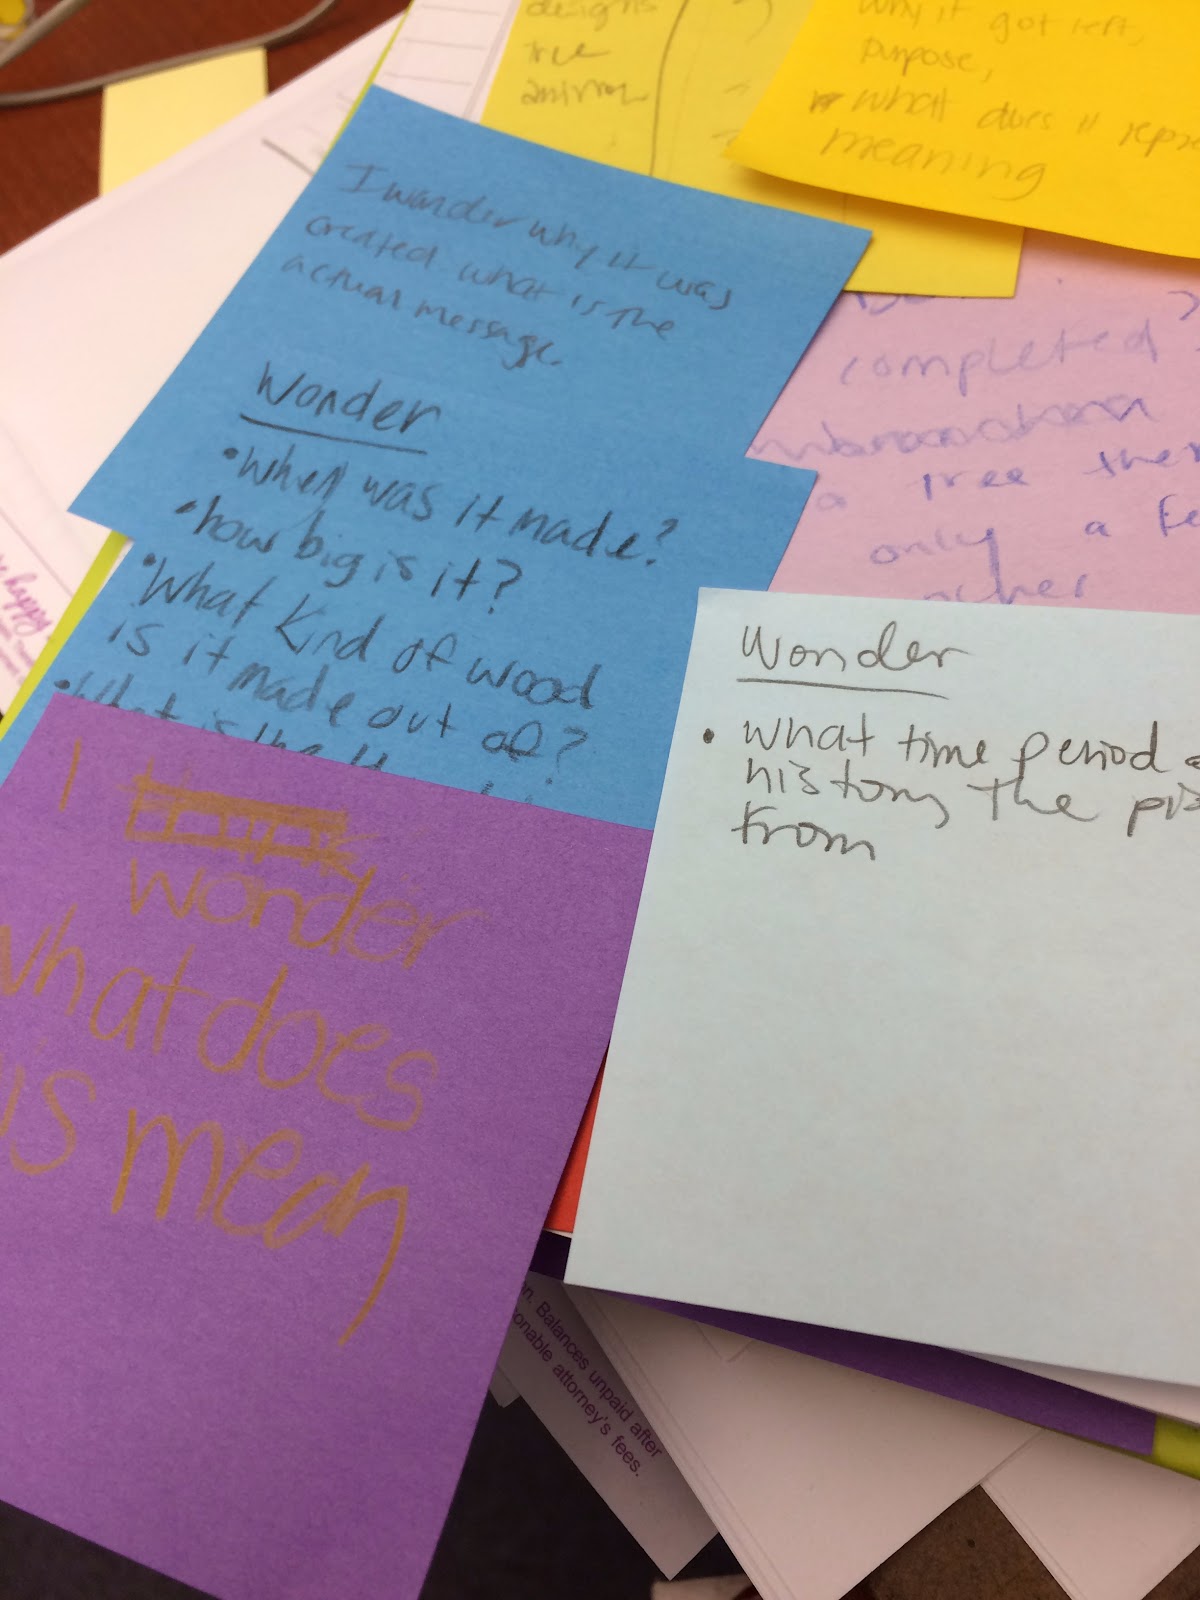 designs
tree
animal
why it got left,
purpose,
what does it repre
meaning
I wander why it was
created what is the
actual message.
Wonder
•When was it made?
•how big is it?
•What kind of wood
is it made out of?
•What is the
completed
a tree ther
only a fe
Wonder
• what time period
history the
from
I
wonder
what does
is mean
happy
n. Balances unpaid after
onable attorney's fees.